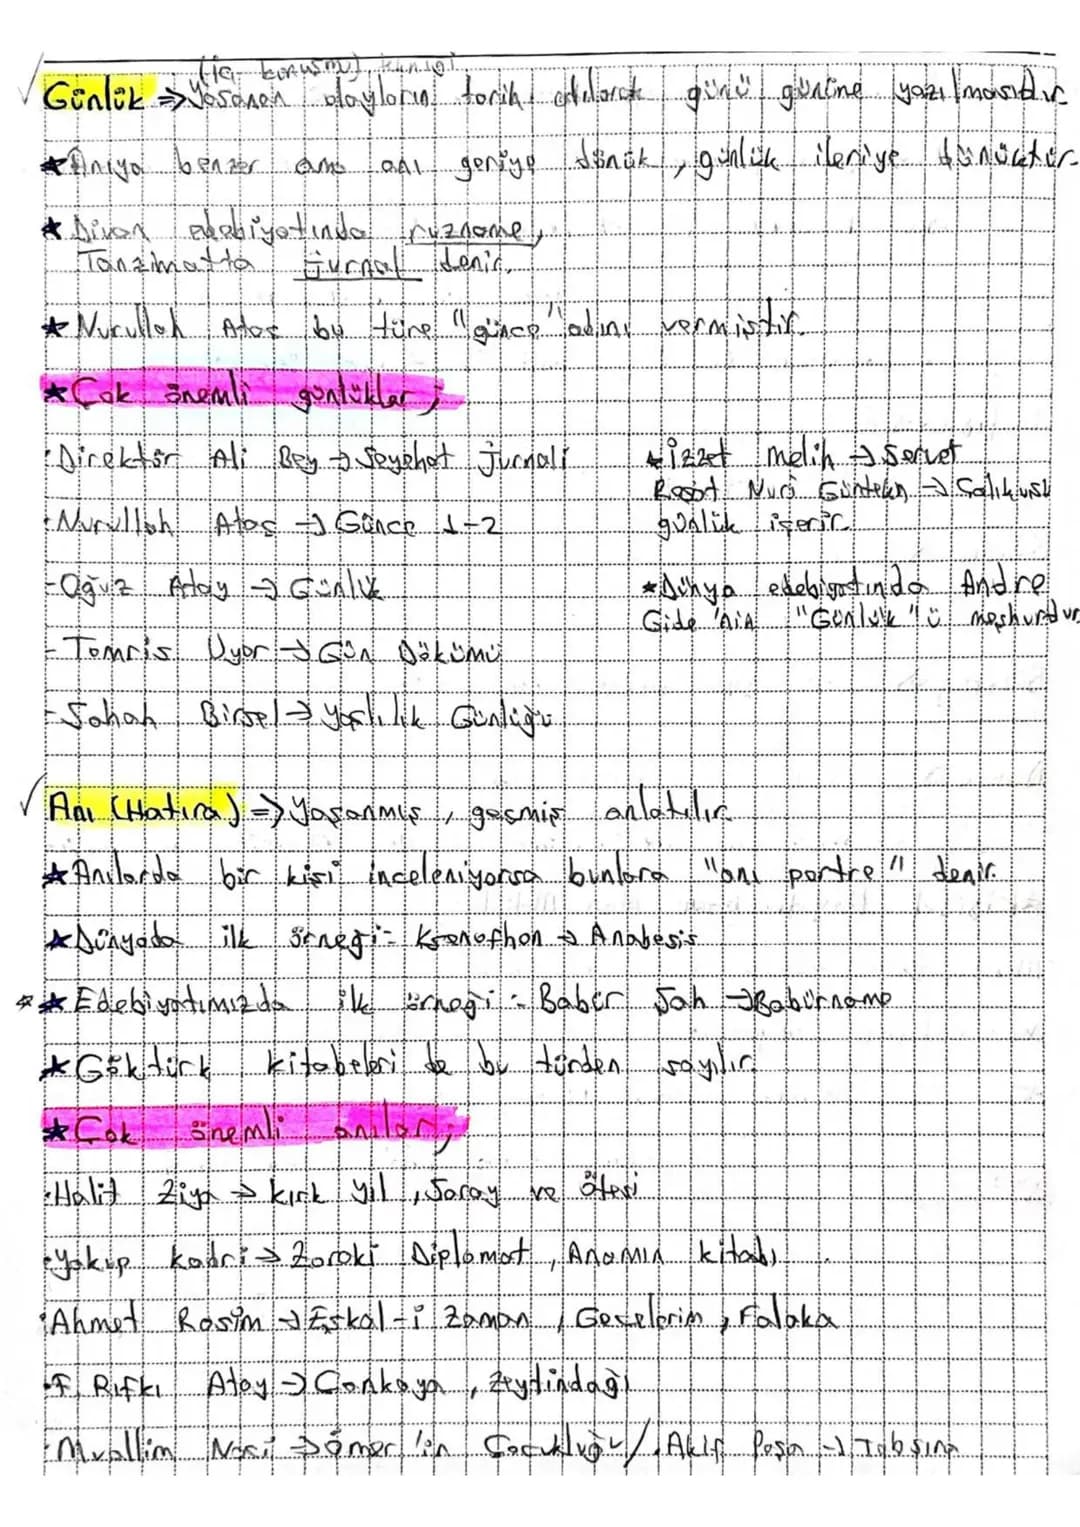 (iç konuşma), kendi
Günlük => Yaşanan olayların tarih atılarak günü gününe yazılmasıdır
★ Anıya benzer ama anı geriye dönük, günlük ileriye dönüktür.
★ Divan edebiyatında ruzname,
Tanzimatta jurnal denir.
★ Nurullah Ataç bu türe "günce" adını vermiştir.
★ Çok önemli günlükler;
· Direktör Ali Bey → Seyehat Jurnali
- Nurullah Ataç → Günce 1-2
- Oğuz Atay → Günlük
- Tomris Uyar → Gün Dökümü
- Salah Birsel → Yaşlılık Günlüğü
★ İzzet Melih → Sermet
Reşat Nuri Güntekin → Çalıkuşu
günlük içerir.
★ Dünya edebiyatında Andre
Gide'nin "Günlük"ü meşhurdur
Anı (Hatıra) => Yaşanmış, geçmiş anlatılır.
★ Anılarda bir kişi inceleniyorsa bunlara "anı portre" denir.
★ Dünyada ilk örneği: Ksenofhon → Anabesis
★ ★ Edebiyatımızda ilk örneği: Babür Şah → Babürname
★ Göktürk kitabeleri de bu türden sayılır.
★ Çok önemli anılar;
· Halit Ziya → Kırk yıl, Saray ve Ötesi
· Yakup Kadri → Zoraki Diplomat, Anamın kitabı
· Ahmet Rasim → Eşkal-i Zaman, Gecelerim, Falaka
· F. Rıfkı Atay → Çankaya, Zeytindağı
· Muallim Naci → Ömer'in Çocukluğu / Akif Paşa → Tabsıra